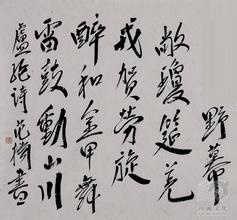 野幕
敞瓊筵羌
戎賀勞旋
醉和金甲舞
雷鼓動山川
盧綸詩 范 書